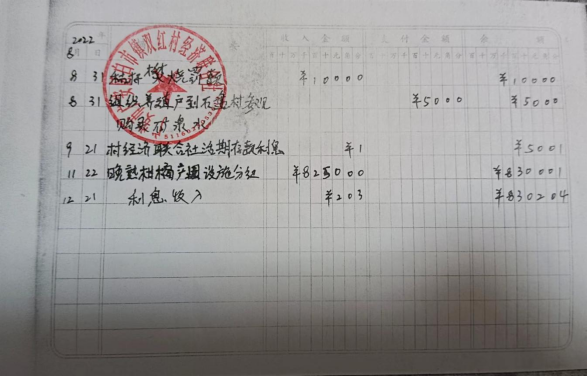 2022
8
月 日 收入金额 支付金额 余额
8 31 焚烧 ¥10000 ¥10000
8 31 组织养殖户到石 村参观 ¥5000 ¥5000
购买矿泉水
9 21 村经济联合社活期存款利息 ¥1 ¥5001
11 22 晚熟柑橘产园设施分红 ¥825000 ¥830001
12 21 利息收入 ¥203 ¥830204
镇双红村经济联合